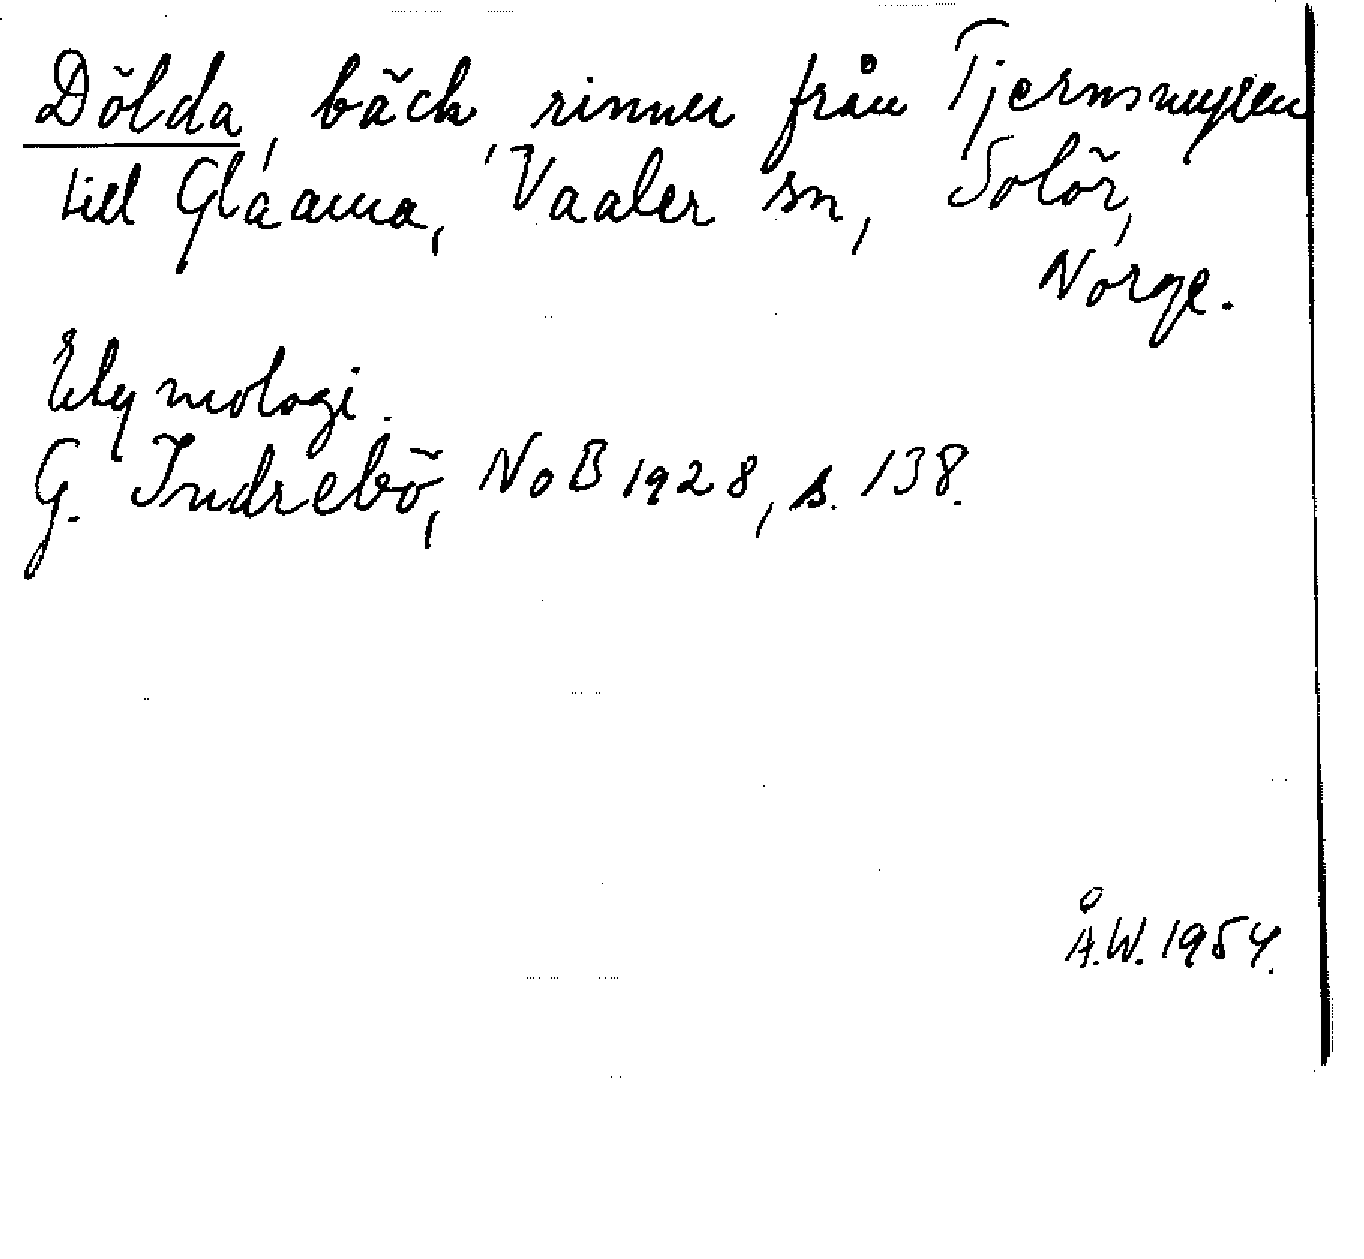 Dölda, bäck, rinner från Tjernsmyren
till Glaama, Vaaler sn, Solör,
Norge.
Etymologi.
G. Indrebö, NoB 1928, s. 138.
Å.W. 1954.